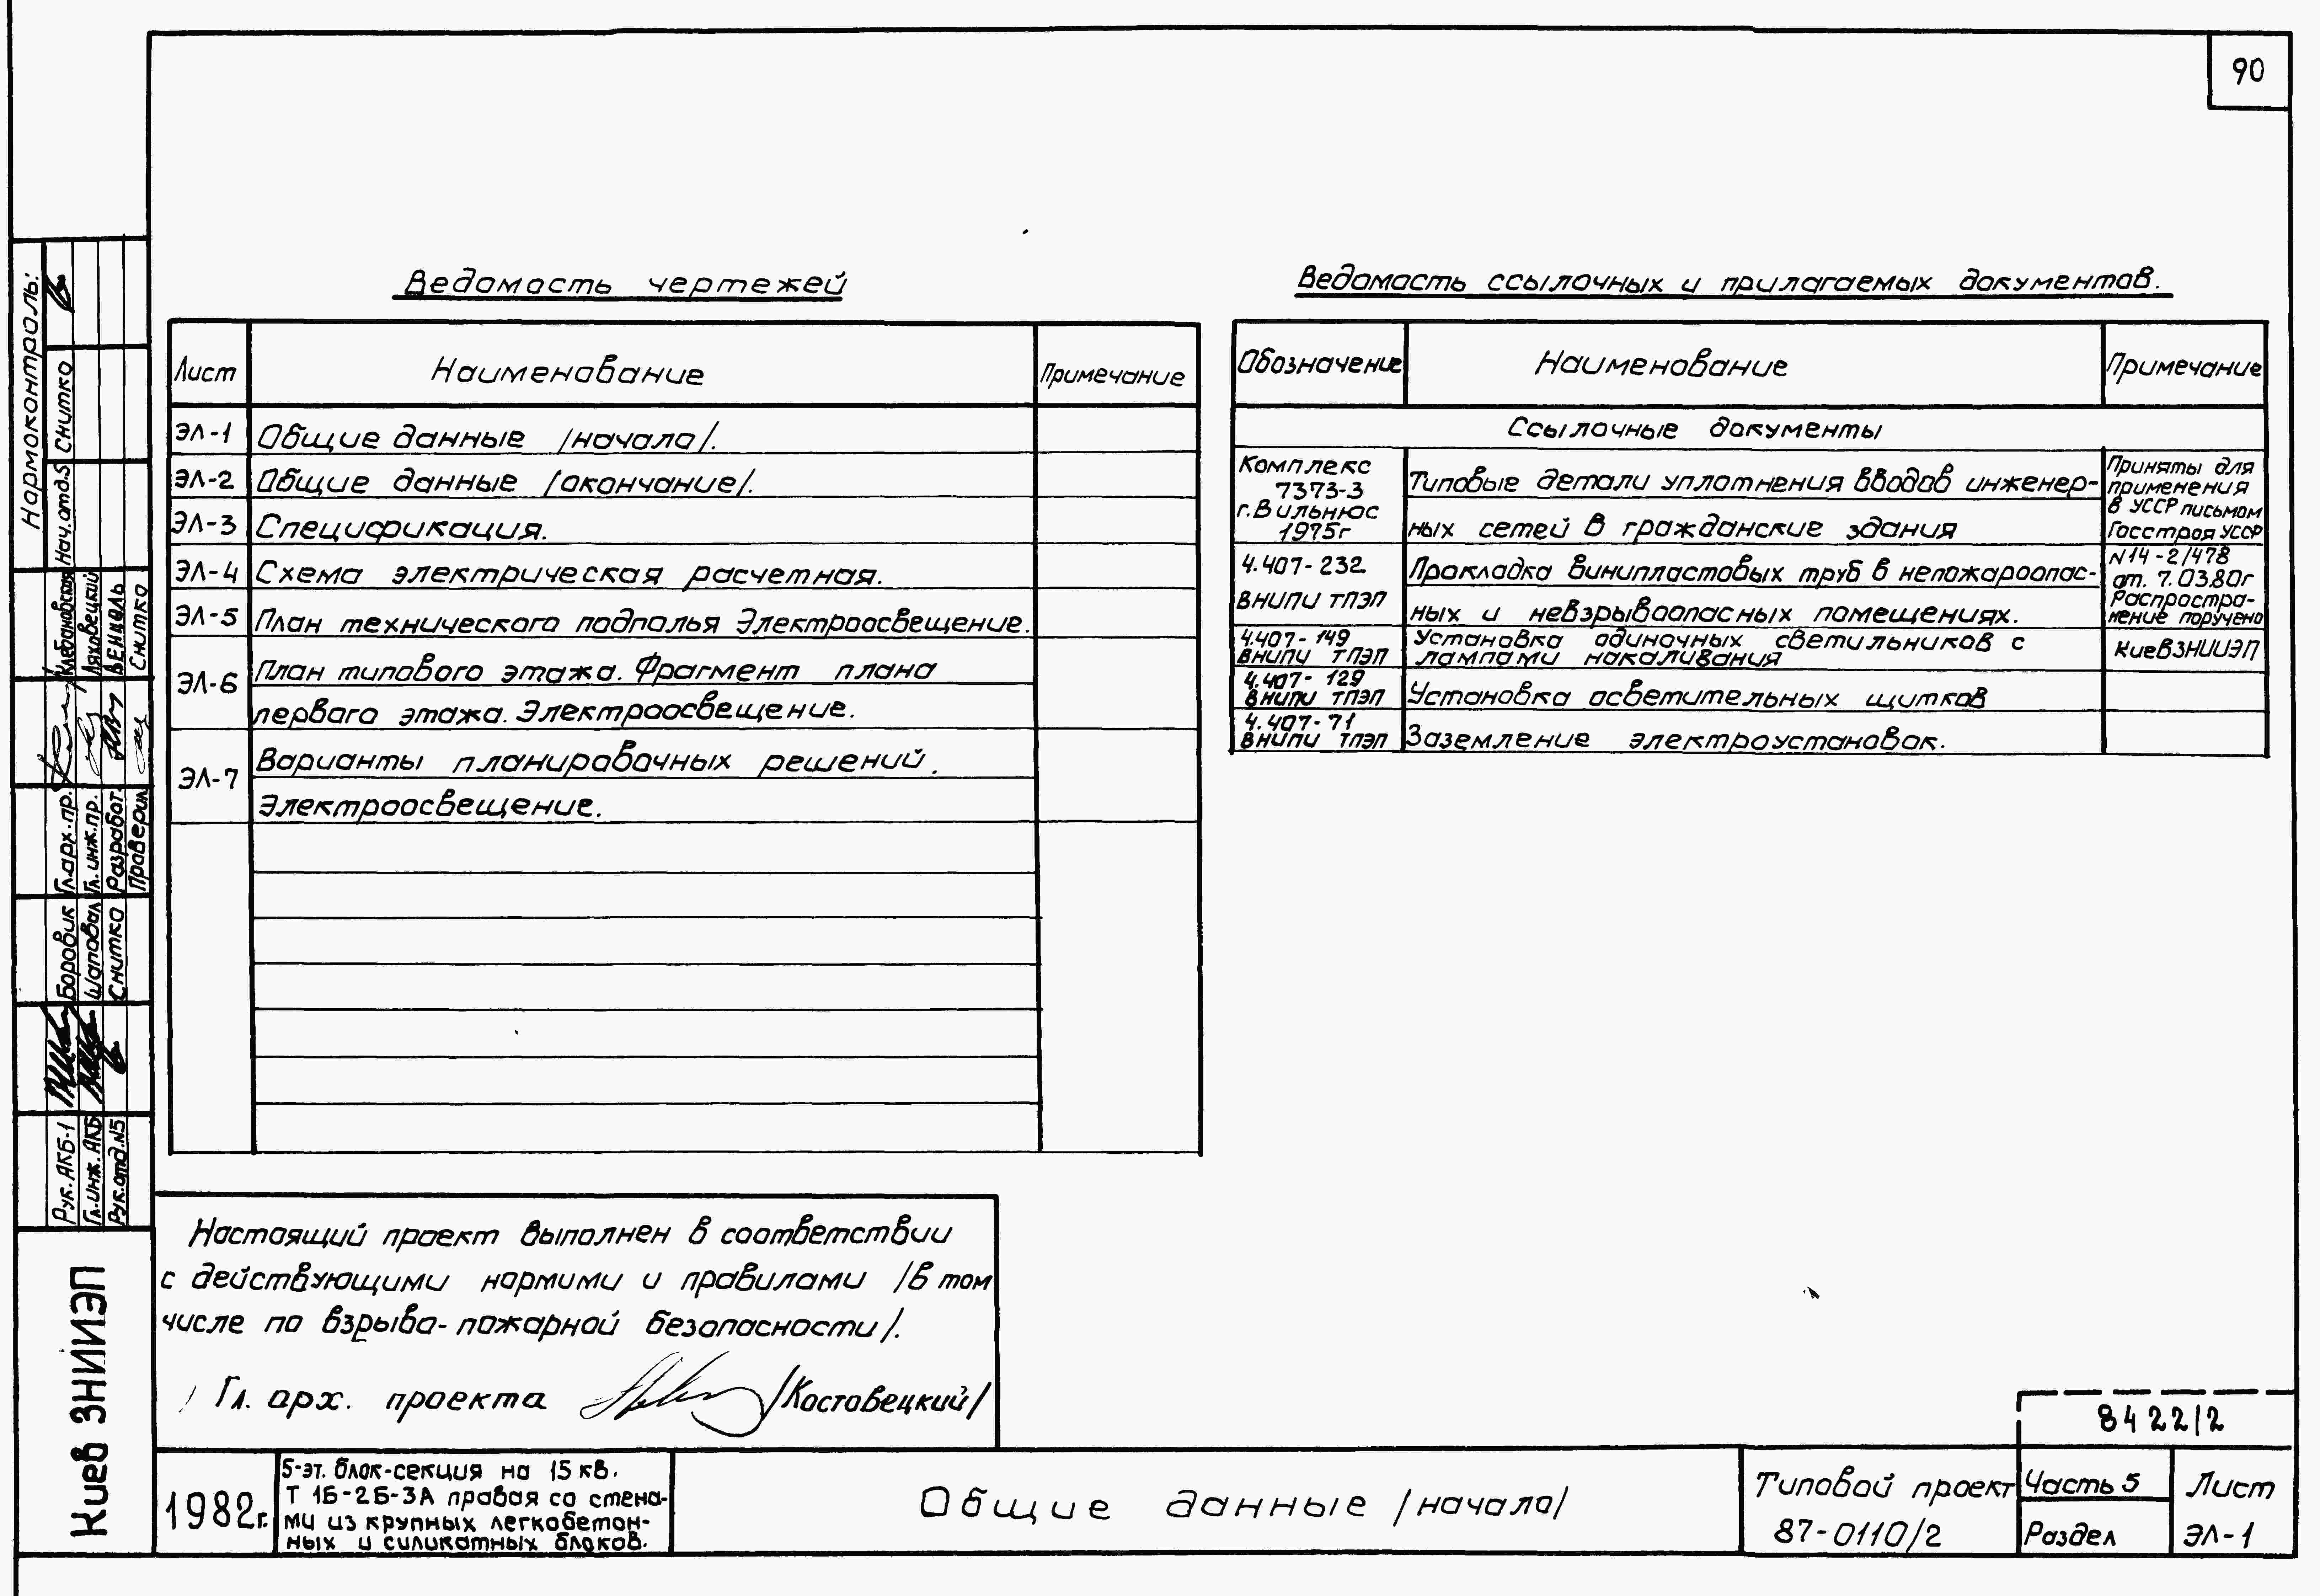 90
Ведомость чертежей
Лист Наименование Примечание
ЭЛ-1 Общие данные /начало/.
ЭЛ-2 Общие данные /окончание/.
ЭЛ-3 Спецификация.
ЭЛ-4 Схема электрическая расчетная.
ЭЛ-5 План технического подполья Электроосвещение.
ЭЛ-6 План типового этажа. Фрагмент плана
первого этажа. Электроосвещение.
ЭЛ-7 Варианты планировочных решений.
Электроосвещение.
Ведомость ссылочных и прилагаемых документов.
Обозначение Наименование Примечание
Ссылочные документы
Комплекс
7373-3
г. Вильнюс
1975г
Типовые детали уплотнения вводов инженер-
ных сетей в гражданские здания
4.407-232
ВНИПИ ТПЭП
Прокладка винипластовых труб в непожароопас-
ных и невзрывоопасных помещениях.
4.407-149
ВНИПИ ТПЭП
Установка одиночных светильников с
лампами накаливания
4.407-129
ВНИПИ ТПЭП
Установка осветительных щитков
4.407-71
ВНИПИ ТПЭП
Заземление электроустановок.
Приняты для
применения
в УССР письмом
Госстроя УССР
N14-2/478
от. 7.03.80г
Распростра-
нение поручено
КиевЗНИИЭП
Настоящий проект выполнен в соответствии
с действующими нормими и правилами /в том
числе по взрыво-пожарной безопасности/.
Гл. арх. проекта /Костовецкий/
Нормоконтроль:
Нач.отд.5 Снитко
Гл.арх.пр. Клебановская
Гл.инж.пр. Ляховецкий
Разработ. Венцель
Проверил Снитко
Рук.АКБ-1 Боровик
Гл.инж.АКБ Шаповал
Рук.отд.N5 Снитко
Киев ЗНИИЭП
1982г.
5-эт. блок-секция на 15 кв.
Т 1Б-2Б-3А правая со стена-
ми из крупных легкобетон-
ных и силикатных блоков.
Общие данные /начало/
8422/2
Типовой проект
87-0110/2
Часть 5
Раздел
Лист
ЭЛ-1